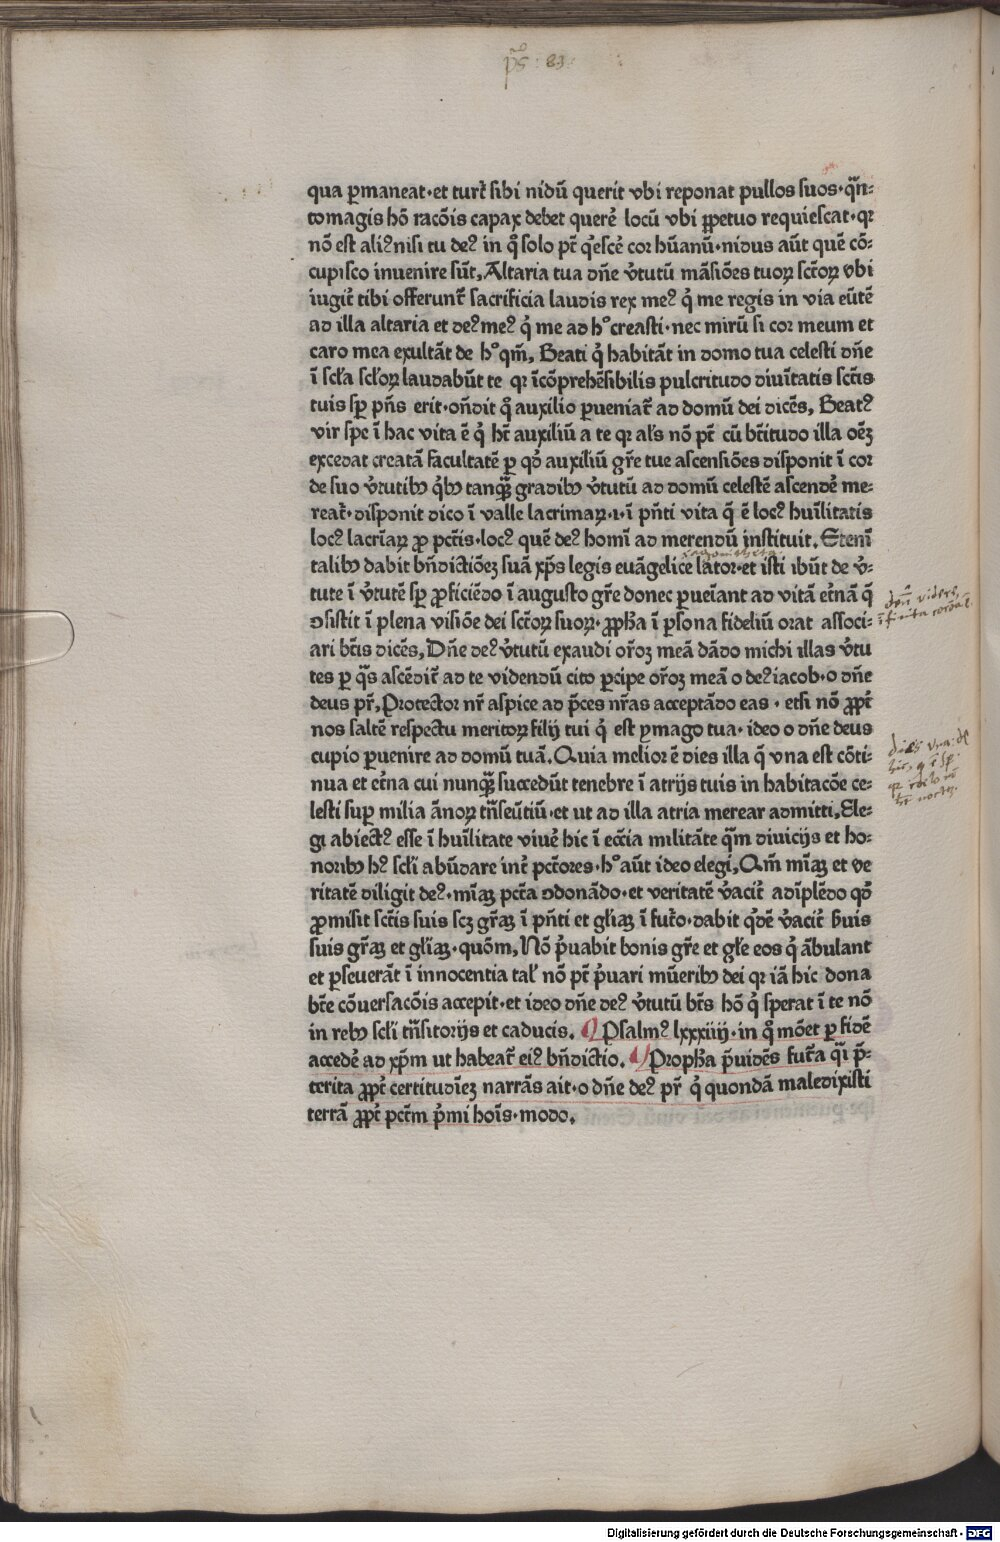 p̄s : 83 :
qua ꝑmaneat·et turt᷑ sibi nidū querit vbi reponat pullos suos·qn̄-
tomagis hō racōis capax debet querē locū vbi ꝑpetuo requiescat·qꝛ
nō est aliꝰ nisi tu deꝰ in q̊ solo pt̄ q̇escē cor hūanū·nidus aūt quē cō-
cupisco inuenire sūt, Altaria tua dn̄e v̓tutū māsiōes tuoꝝ sct̄oꝝ vbi
iugit᷑ tibi offerunt᷑ sacrificia laudis rex meꝰ q̇ me regis in via eūtē
ad illa altaria et deꝰ meꝰ q̇ me ad hᵒ creasti·nec mirū si cor meum et
caro mea exultāt de hᵒ qm̄, Beati q̇ habitāt in domo tua celesti dn̄e
ī scl̄a scl̄oꝝ laudabūt te qꝛ īcōprehēsibilis pulcritudo diuītatis sct̄is
tuis sꝑ pn̄s erit·on̄dit q̊ auxilio ꝑueniat᷑ ad domū dei dicēs, Beatꝰ
vir spe ī hac vita ē q̇ ht̄ auxiliū a te qꝛ al̄s nō pt̄ cū bt̄itudo illa oēꝫ
excedat creatā facultatē ꝑ qd̓ auxiliū gr̄e tue ascensiōes disponit ī cor
de suo v̓tutibꝫ q̇bꝫ tanqꝫ̄ gradibꝫ v̓tutū ad domū celestē ascendē me-
reat᷑·disponit dico ī valle lacrimaꝝ·i·ī pn̄ti vita q̄ ē locꝰ hūilitatis
locꝰ lacrīaꝝ ꝓ pct̄is·locꝰ quē deꝰ homī ad merendū instituit, Etenī
talibꝫ dabit bn̄dictiōeꝫ suā xp̄s legis euāgelice lator·et isti ibūt de v̓-
tute ī v̓tutē sꝑ ꝓficiēdo ī augusto gr̄e donec ꝑueīant ad vitā et̓nā q̄
ꝯsistit ī plena visiōe dei sct̄oꝝ suoꝝ·ꝓph̄a ī ꝑsona fideliū orat associ-
ari bt̄is dicēs, Dn̄e deꝰ v̓tutū exaudi or̄oꝫ meā dādo michi illas v̓tu
tes ꝑ qs̄ ascēdit᷑ ad te videndū cito ꝑcipe or̄oꝫ meā o deꝰ iacob·o dn̄e
deus pr̄, Protector nr̄ aspice ad p̄ces nr̄as acceptādo eas·etsi nō ꝓpt᷑
nos saltē respectu meritoꝝ filij tui q̇ est ymago tua·ideo o dn̄e deus
cupio ꝑuenire ad domū tuā. Quia melior ē dies illa q̄ vna est cōti-
nua et et̓na cui nunqꝫ̄ succedūt tenebre ī atrijs tuis in habitacōe ce-
lesti suꝑ milia ānoꝝ trn̄seūtiū·et ut ad illa atria merear admitti, Ele-
gi abiectꝰ esse ī hūilitate viuē hic ī eccīa militāte qm̄ diuicijs et ho-
noribꝫ hꝰ scl̄i abūdare int᷑ pct̄ores·hᵒ aūt ideo elegi, Qm̄ mīaꝫ et ve
ritatē diligit deꝰ·mīaꝫ pct̄a ꝯdonādo·et veritatē v̓acit᷑ adīplēdo qd̓
ꝓmisit sct̄is suis scꝫ gr̄aꝫ ī pn̄ti et gl̄iaꝫ ī fut᷑o·dabit q̇dē v̓acit᷑ suis
suis gr̄aꝫ et gl̄iaꝫ·quōm, Nō p̓uabit bonis gr̄e et gl̄e eos q̇ ābulant
et ꝑseuerāt ī innocentia tal̓ nō pt̄ p̓uari mūeribꝫ dei qꝛ iā hic dona
bt̄e cōuersacōis accepit·et ideo dn̄e deꝰ v̓tutū bt̄s hō q̇ sperat ī te nō
in rebꝫ scl̄i trn̄sitorijs et caducis. ¶ Psalmꝰ lxxxiiij·in q̊ mōet ꝑ fidē
accedē ad xp̄m ut habeat᷑ eiꝰ bn̄dictio. ¶ Proph̄a p̄uidēs fut᷑a q̄i p̄-
terita ꝓpt᷑ certitudīeꝫ narrās ait·o dn̄e deꝰ pr̄ q̇ quondā maledixisti
terrā ꝓpt᷑ pct̄m p̓mi hoīs·modo,
Digitalisierung gefördert durch die Deutsche Forschungsgemeinschaft - DFG